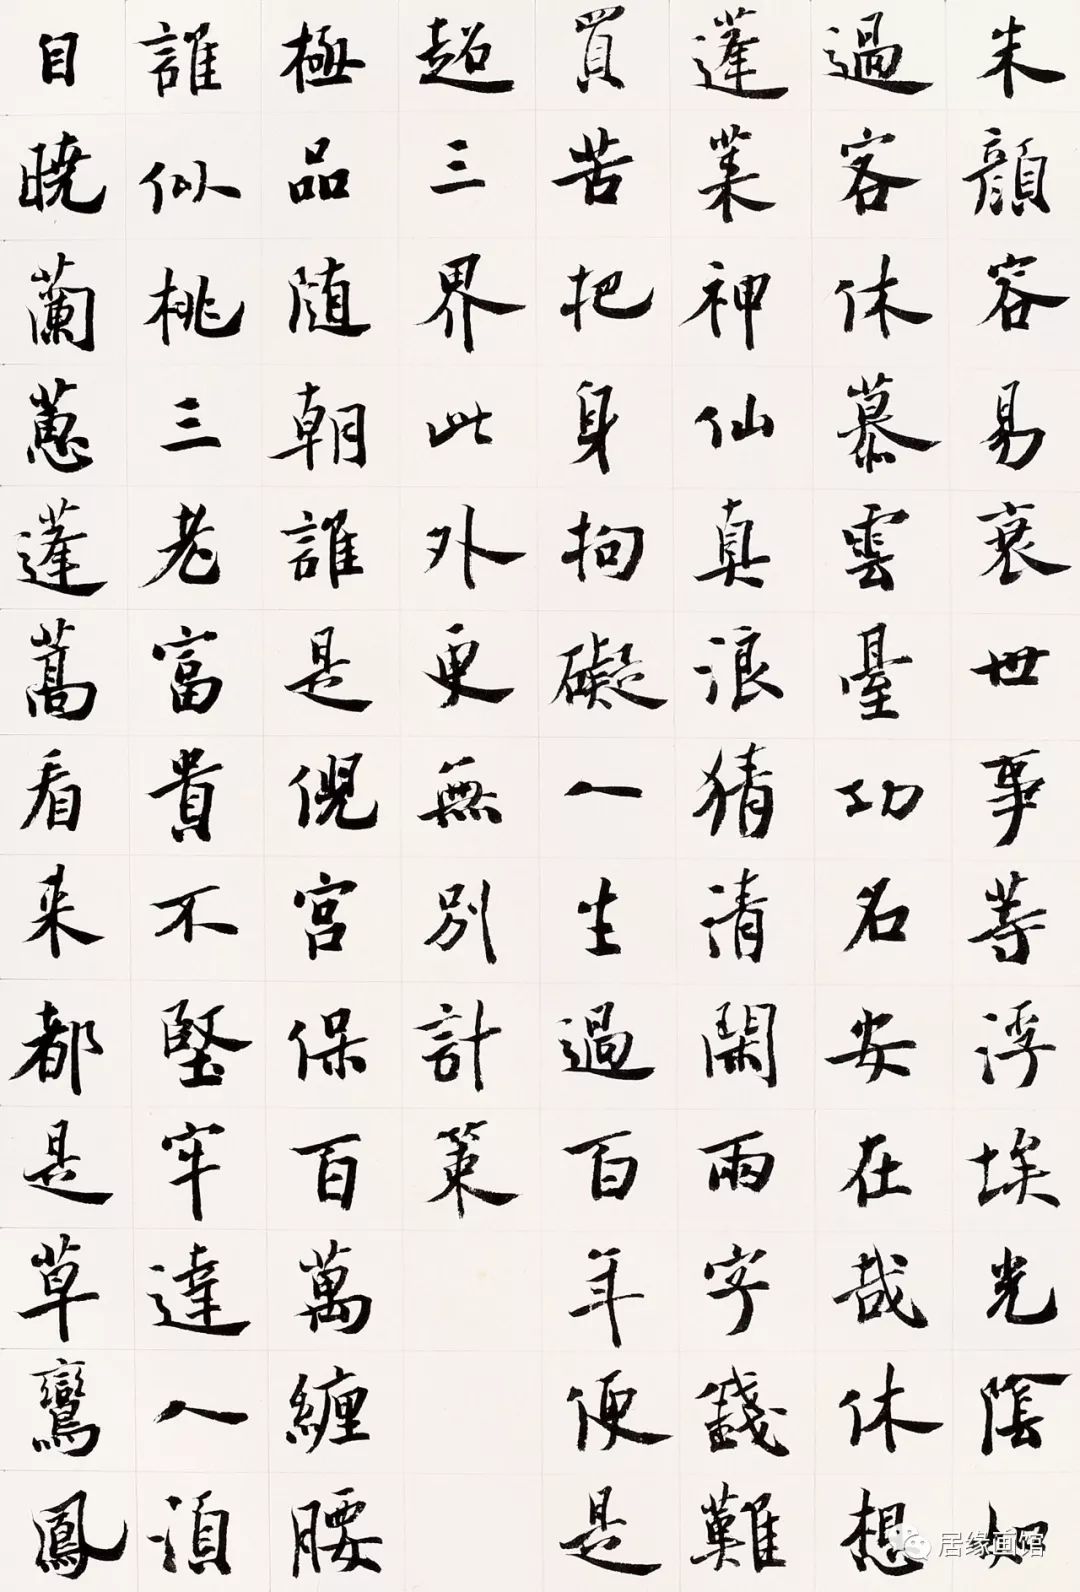 朱顏容易衰世事等浮埃光陰如
過客休慕雲臺功名安在哉休想
蓬莱神仙真浪猜清閑兩字錢難
買苦把身拘礙一生過百年便是
超三界此外更無別計策
極品随朝誰是倪宮保百萬纏腰
誰似桃三老富貴不堅牢達人須
自曉蘭蕙蓬蒿看来都是草鸞鳳
居缘画馆